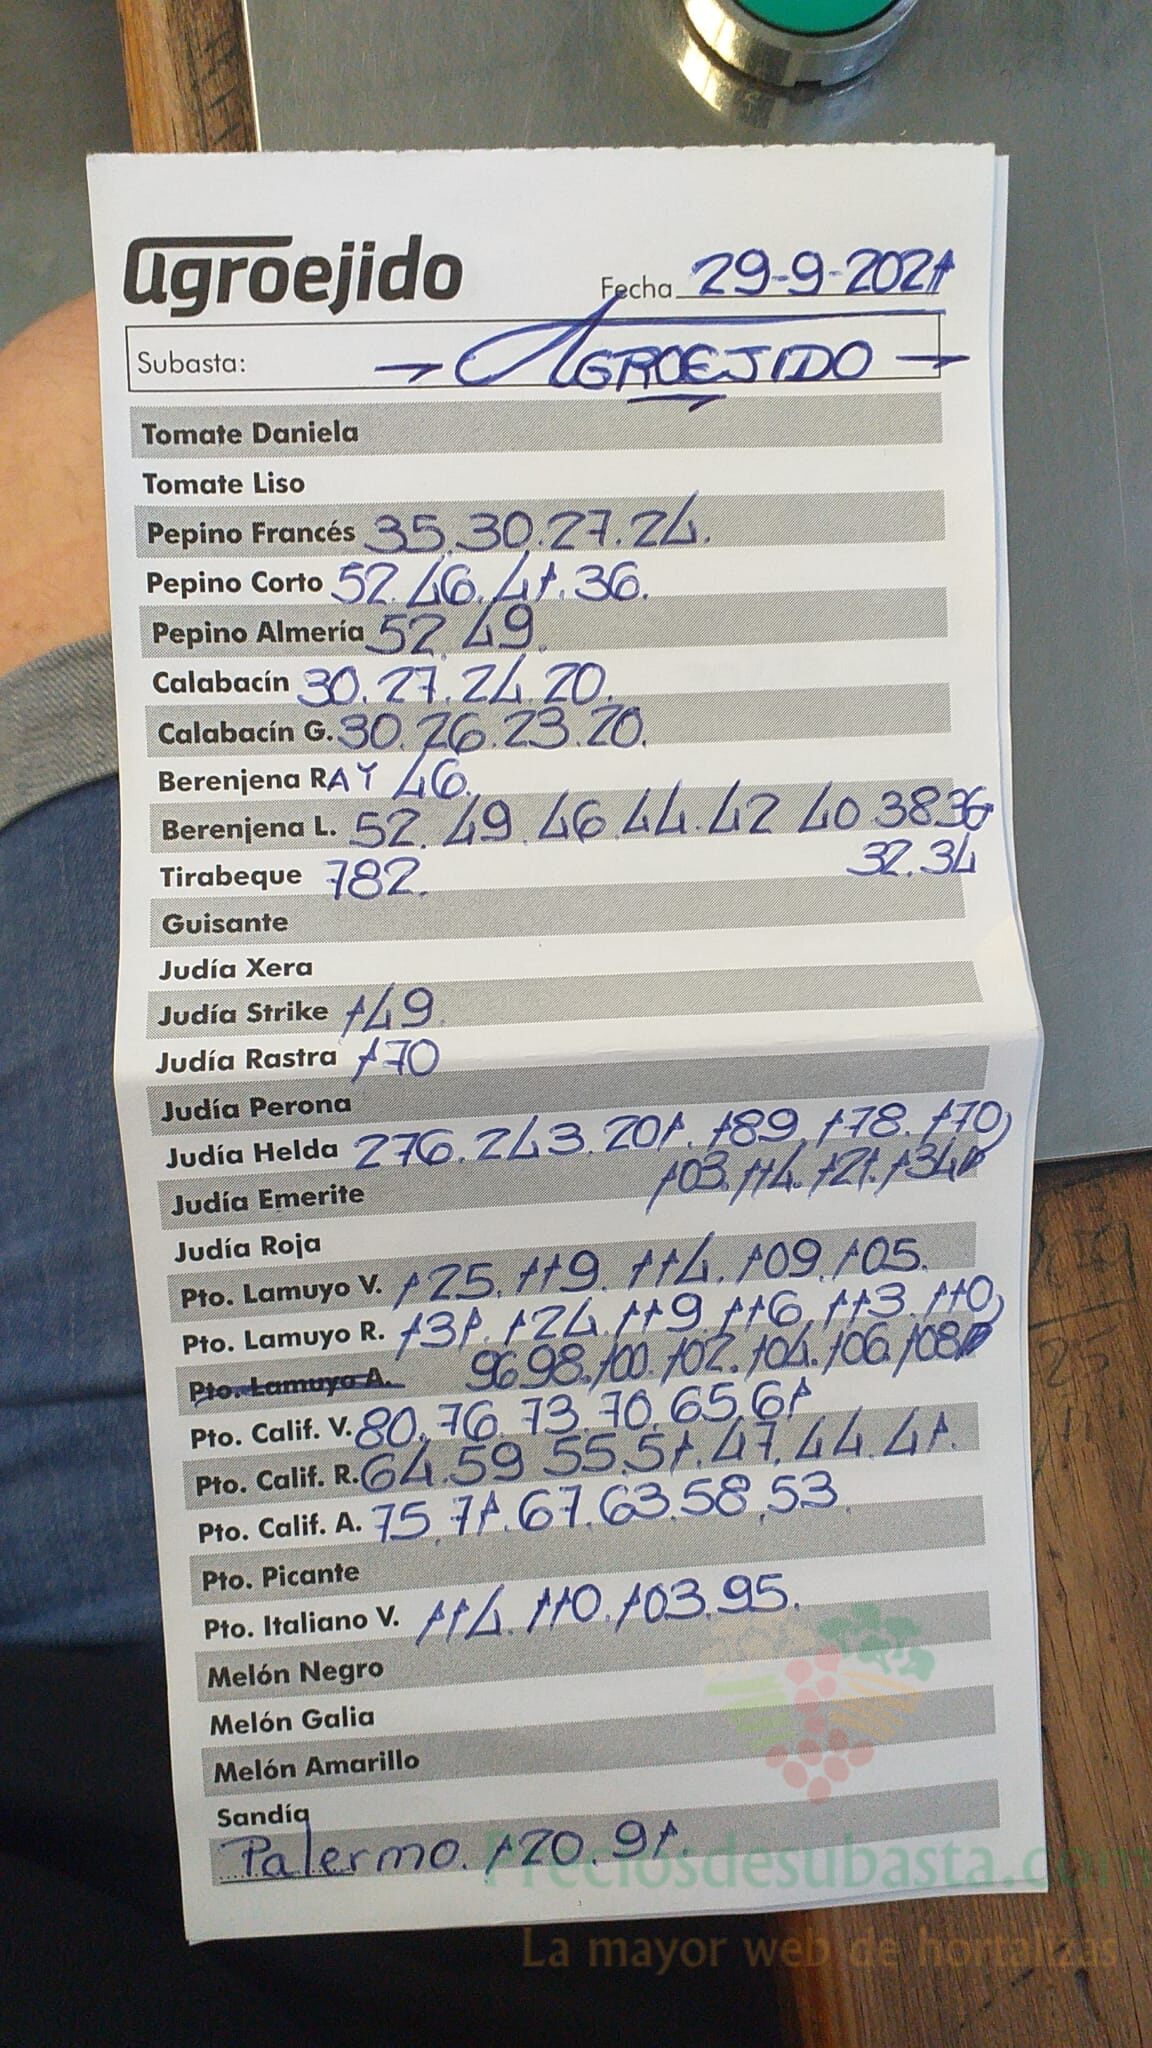 agroejido
Fecha 29-9-2021
Subasta: → AGROEJIDO →
Tomate Daniela
Tomate Liso
Pepino Francés 35.30.27.24.
Pepino Corto 52.46.41.36.
Pepino Almería 52.49.
Calabacín 30.27.24.20.
Calabacín G. 30.26.23.20.
Berenjena RAY 46.
Berenjena L. 52.49.46.44.42 40 38.36
Tirabeque 782. 32.34
Guisante
Judía Xera
Judía Strike 149
Judía Rastra 170
Judía Perona
Judía Helda 276.243.201.189.178.170
Judía Emerite 103.114.121.134
Judía Roja
Pto. Lamuyo V. 125.119.114.109.105.
Pto. Lamuyo R. 131.124.119.116.113.110
Pto. Lamuyo A. 96.98.100.102.104.106.108
Pto. Calif. V. 80.76.73.70.65.61
Pto. Calif. R. 64.59 55.51.47.44.41.
Pto. Calif. A. 75.71.67.63.58.53.
Pto. Picante
Pto. Italiano V. 114.110.103.95.
Melón Negro
Melón Galia
Melón Amarillo
Sandía
Palermo. 120.91.
Preciosdesubasta.com
La mayor web de hortalizas